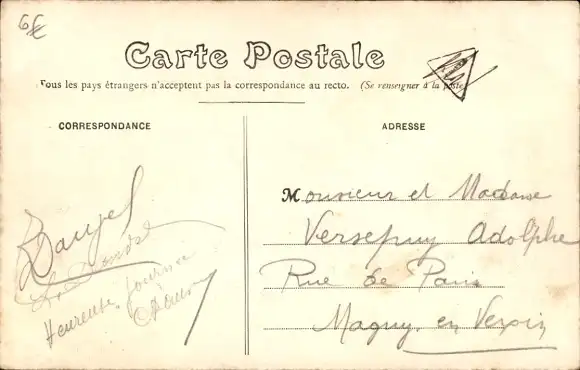 6€
Carte Postale
Tous les pays étrangers n'acceptent pas la correspondance au recto. (Se renseigner à la poste
CORRESPONDANCE
ADRESSE
Heureuse journée
à
Monsieur et Madame
Versepuy Adolphe
Rue de Paris
Magny en Vexin